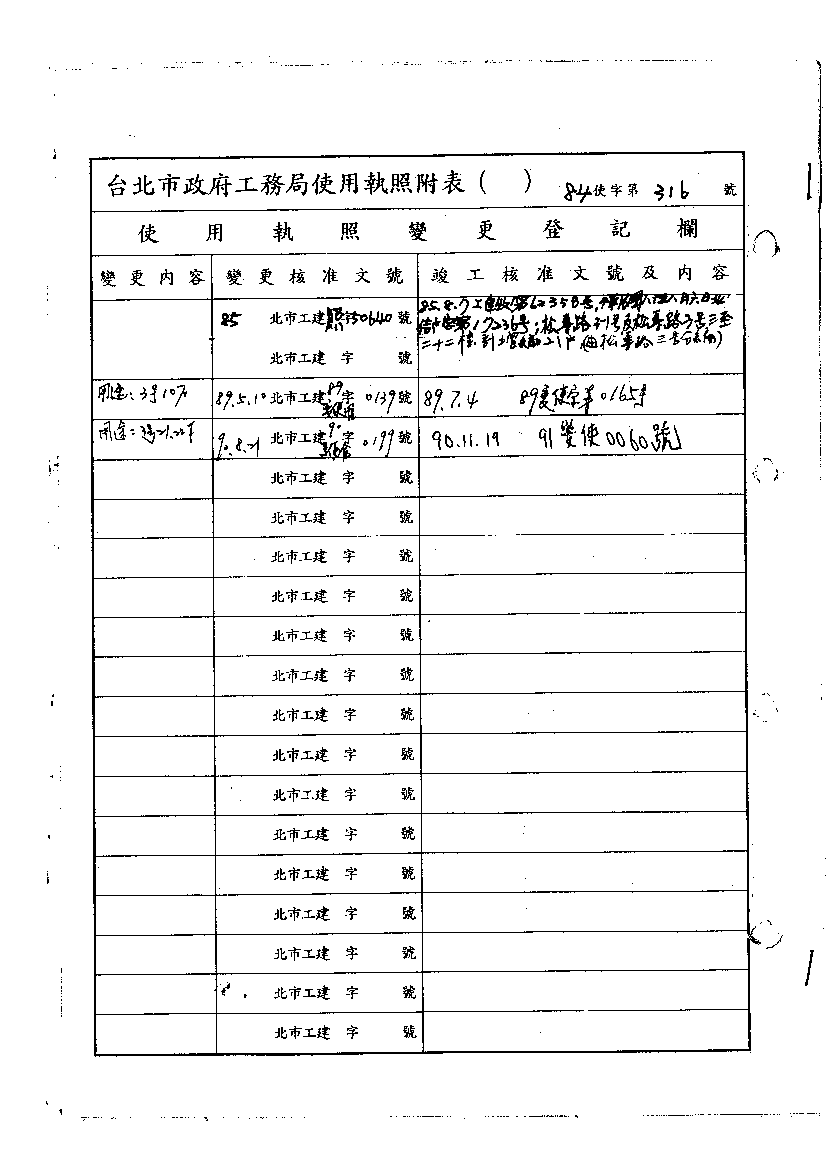 台北市政府工務局使用執照附表( ) 84使字第 316 號
使用執照變更登記欄
變更內容 變更核准文號 竣工核准文號及內容
85 北市工建照字50640號
北市工建 字 號
用途:3號10F 89.5.10 北市工建 89 字0139號 89.7.4 89變使字第0165號
用途:3號21.22F 90.8.21 北市工建 90 字0199號 90.11.19 91變使0060號
北市工建 字 號
北市工建 字 號
北市工建 字 號
北市工建 字 號
北市工建 字 號
北市工建 字 號
北市工建 字 號
北市工建 字 號
北市工建 字 號
北市工建 字 號
北市工建 字 號
北市工建 字 號
北市工建 字 號
北市工建 字 號
北市工建 字 號